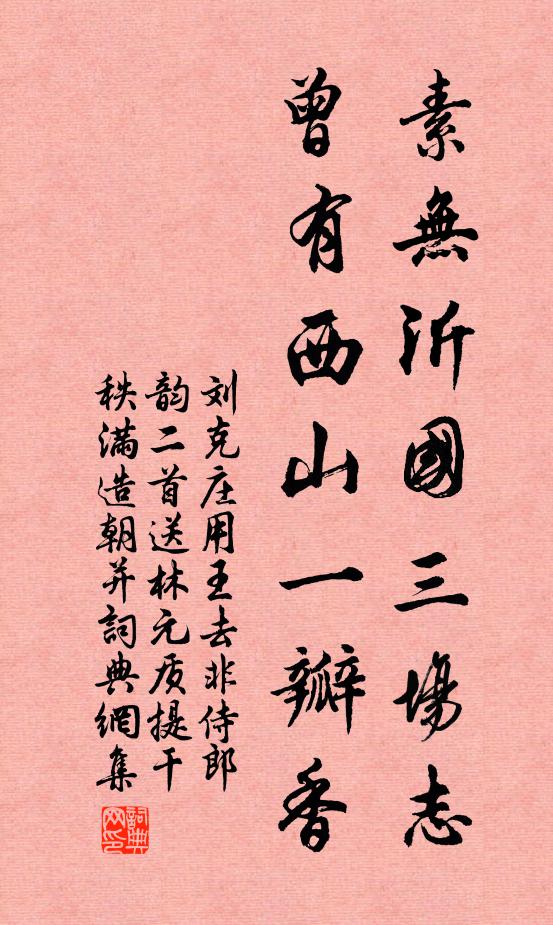 素無沂國三場志
曾有西山一瓣香
刘克庄用王去非侍郎
韵二首送林元质提干
秩满造朝并詞典網集
詞典
网印